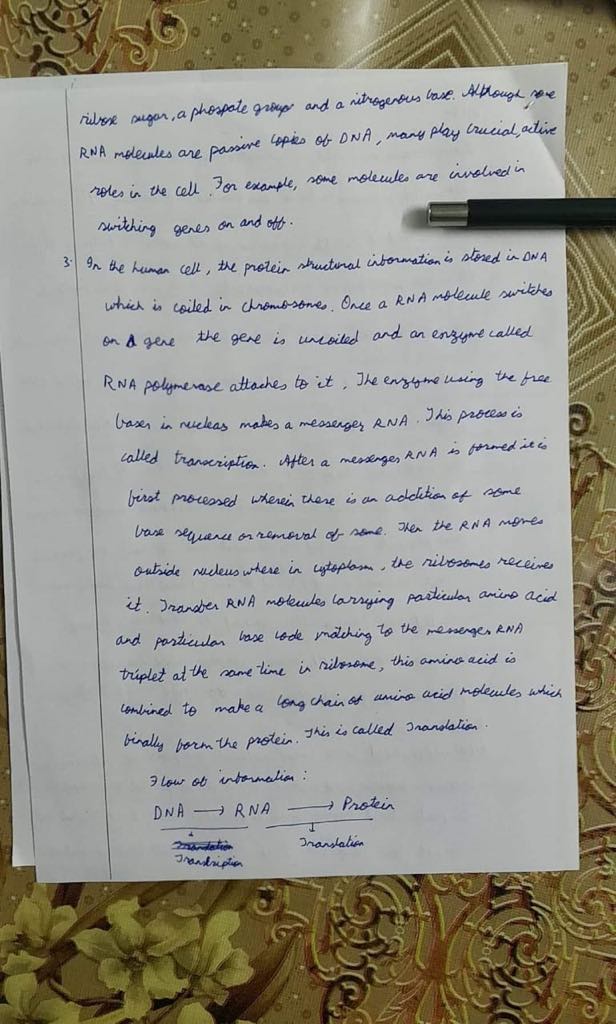 ribose sugar, a phospate group and a nitrogenous base. Although some
RNA molecules are passive copies of DNA, many play crucial, active
roles in the cell. For example, some molecules are involved in
switching genes on and off.
3. In the human cell, the protein structural information is stored in DNA
which is coiled in chromosomes. Once a RNA molecule switches
on A gene the gene is uncoiled and an enzyme called
RNA polymerase attaches to it. The enzyme using the free
bases in nucleus makes a messenger RNA. This process is
called transcription. After a messenger RNA is formed it is
first processed wherein there is an addition of some
base sequence or removal of some. Then the RNA moves
outside nucleus where in cytoplasm, the ribosomes receives
it. Transfer RNA molecules carrying particular amino acid
and particular base code matching to the messenger RNA
triplet at the same time in ribosome, this amino acid is
combined to make a long chain of amino acid molecules which
finally form the protein. This is called Translation.
Flow of information:
DNA → RNA → Protein
Translation
Transkription
Translation